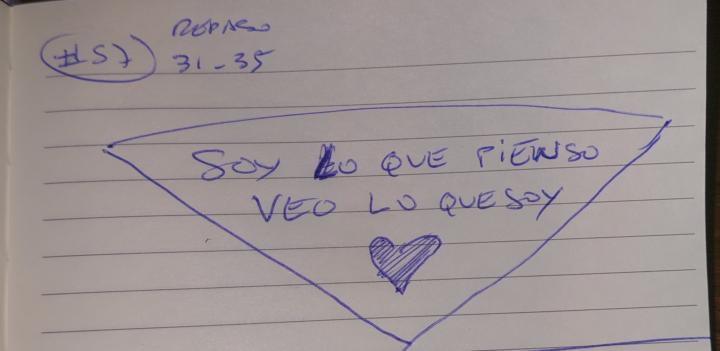 #57
REPASO
31-35
SOY LO QUE PIENSO
VEO LO QUE SOY